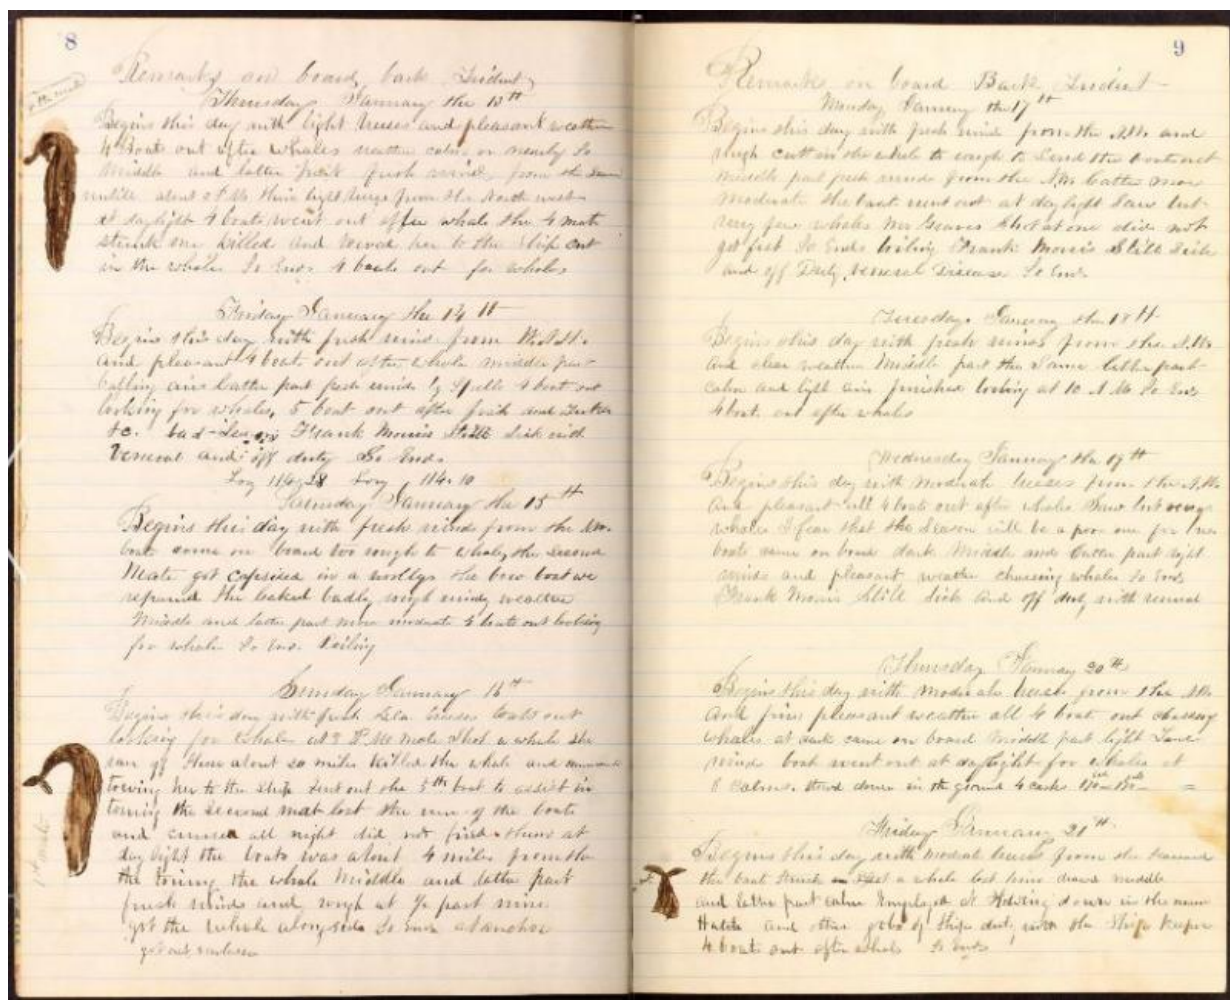 8
Remarks on board bark Trident
Thursday January the 13th
Begins this day with light breeses and pleasant weather
4 Boats out after Whales weather calm or nearly so
Middle and latter part fresh winds from the
untill about then light breze from the North west
at daylight 4 boats went out after whale the 4 mate
struck one killed and towed her to the ship cut
in the whale So Ends 4 boats out for whales
Friday January the 14th
Begins this day with fresh winds from
and pleasant 4 boats out after whale middle part
baffling airs latter part fresh winds by spells 4 boat out
looking for whales, 5 boat out after fish and
&c. Frank Morris still sick with
veneral and off duty So Ends
114.28 114.10
Saturday January the 15th
Begins this day with fresh winds from the NW.
boats came on board too rough to whale, the second
Mate got capsised in a woollys the bow boat we
repaired she leaked badly rough windy weather
Middle and latter part more moderate 4 boats out looking
for whales So Ends. Boiling
Sunday January 16th
Begins this day with fresh Sea breeses boats out
looking for whales at 3 P.M. mate shot a whale she
ran off about 20 miles killed the whale and
towing her to the ship sent out the 5th boat to assist in
towing the second mate lost the run of the boats
and cruised all night did not find them at
day light the boats was about 4 miles from the
the towing the whale Middle and latter part
fresh winds and rough at ½ past nine
got the whale alongside So Ends at anchor
9
Remarks on board Bark Trident
Monday January the 17th
Begins this day with fresh wind from the N.W. and
rough cutt in the whale to rough to send the boats out
middle part fresh winds from the N.W. latter more
moderate the boats went out at daylight Saw but
very few whales Mr Graves shot at one did not
get fast So Ends boiling Frank Morris Still Sick
and off Duty veneral Disease So Ends
Tuesday January the 18th
Begins this day with fresh winds from the N.W.
and clear weather Middle part the Same latter part
calm and light airs finished boiling at 10 A.M. So Ends
4 boats out after whales
Wednesday January the 19th
Begins this day with moderate breeses from the N.W.
and pleasant all 4 boats out after whales Saw but very
whales I fear that the season will be a poor one for us
boats came on board dark Middle and latter part light
winds and pleasant weather chassing whales So Ends
Frank Morris Still Sick and off duty with veneral
Thursday January 20th
Begins this day with moderate breese from the N.W.
and fine pleasant weather all 4 boats out chassing
whales at dark came on board Middle part light Land
wind boats went out at daylight for whales at
8 calm. Stowd down in the ground 4 casks
Friday January 21st
Begins this day with moderate breeses from the
the boat struck a whale lost him drawd middle
and latter part calm Employed at Stowing down in the main
Hatch and other jobs of Ships duty the Ship keeper
4 boats out after whales So Ends